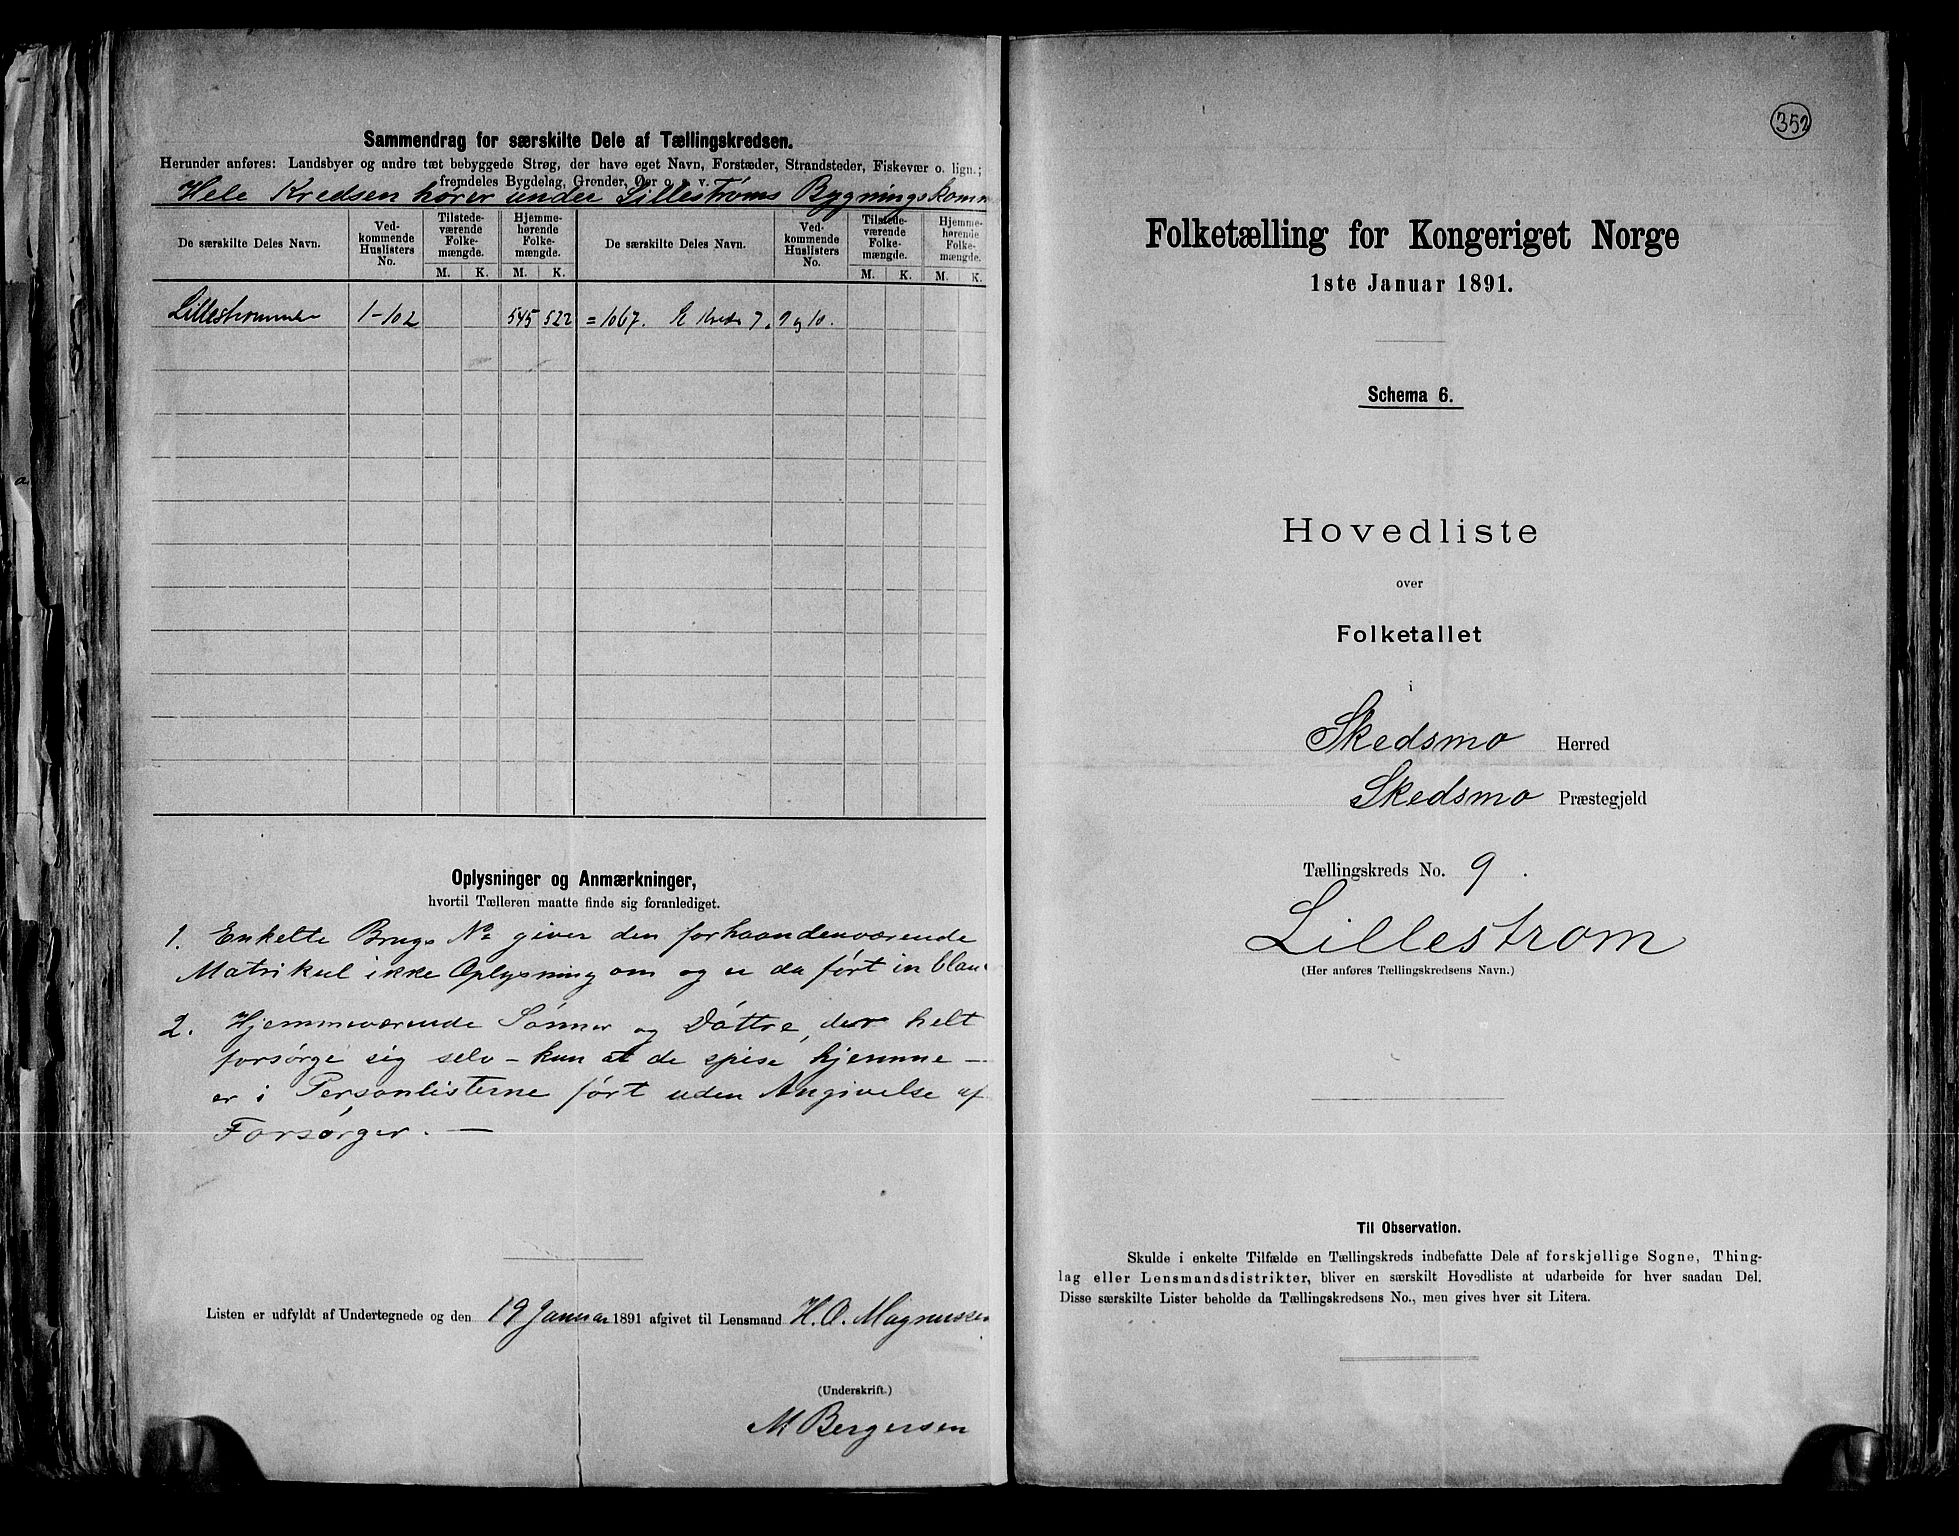 Sammendrag for særskilte Dele af Tællingskredsen.
Herunder anføres: Landsbyer og andre tæt bebyggede Strøg, der have eget Navn, Forstæder, Strandsteder, Fiskevær o. lign.;
fremdeles Bygdelag, Grender, Øer o. s. v.
Hele Kredsen hører under Lillestrøms Bygningskomm
De særskilte Deles Navn. Ved-kommende Huslisters No. Tilstede-værende Folke-mængde. Hjemme-hørende Folke-mængde. De særskilte Deles Navn. Ved-kommende Huslisters No. Tilstede-værende Folke-mængde. Hjemme-hørende Folke-mængde.
M. K. M. K. M. K. M. K.
1-102 545 522 = 1067. 7, 9 og 10.
Oplysninger og Anmærkninger,
hvortil Tælleren maatte finde sig foranlediget.
1. Enkelte Brugs No giver den forhaandenværende
Matrikul ikke Oplysning om og er da ført in blan
2. Hjemmeværende Sønner og Døttre, der helt
forsørge sig selv - kun at de spise hjemme -
er i Personlisterne ført uden Angivelse af
Forsørger. -
Listen er udfyldt af Undertegnede og den 19 Januar 1891 afgivet til Lensmand H. O. Magnussen
(Underskrift.)
M Bergersen
352
Folketælling for Kongeriget Norge
1ste Januar 1891.
Schema 6.
Hovedliste
over
Folketallet
i
Skedsmo Herred
Skedsmo Præstegjeld
Tællingskreds No. 9.
Lillestrøm
(Her anføres Tællingskredsens Navn.)
Til Observation.
Skulde i enkelte Tilfælde en Tællingskreds indbefatte Dele af forskjellige Sogne, Thing-
lag eller Lensmandsdistrikter, bliver en særskilt Hovedliste at udarbeide for hver saadan Del.
Disse særskilte Lister beholde da Tællingskredsens No., men gives hver sit Litera.